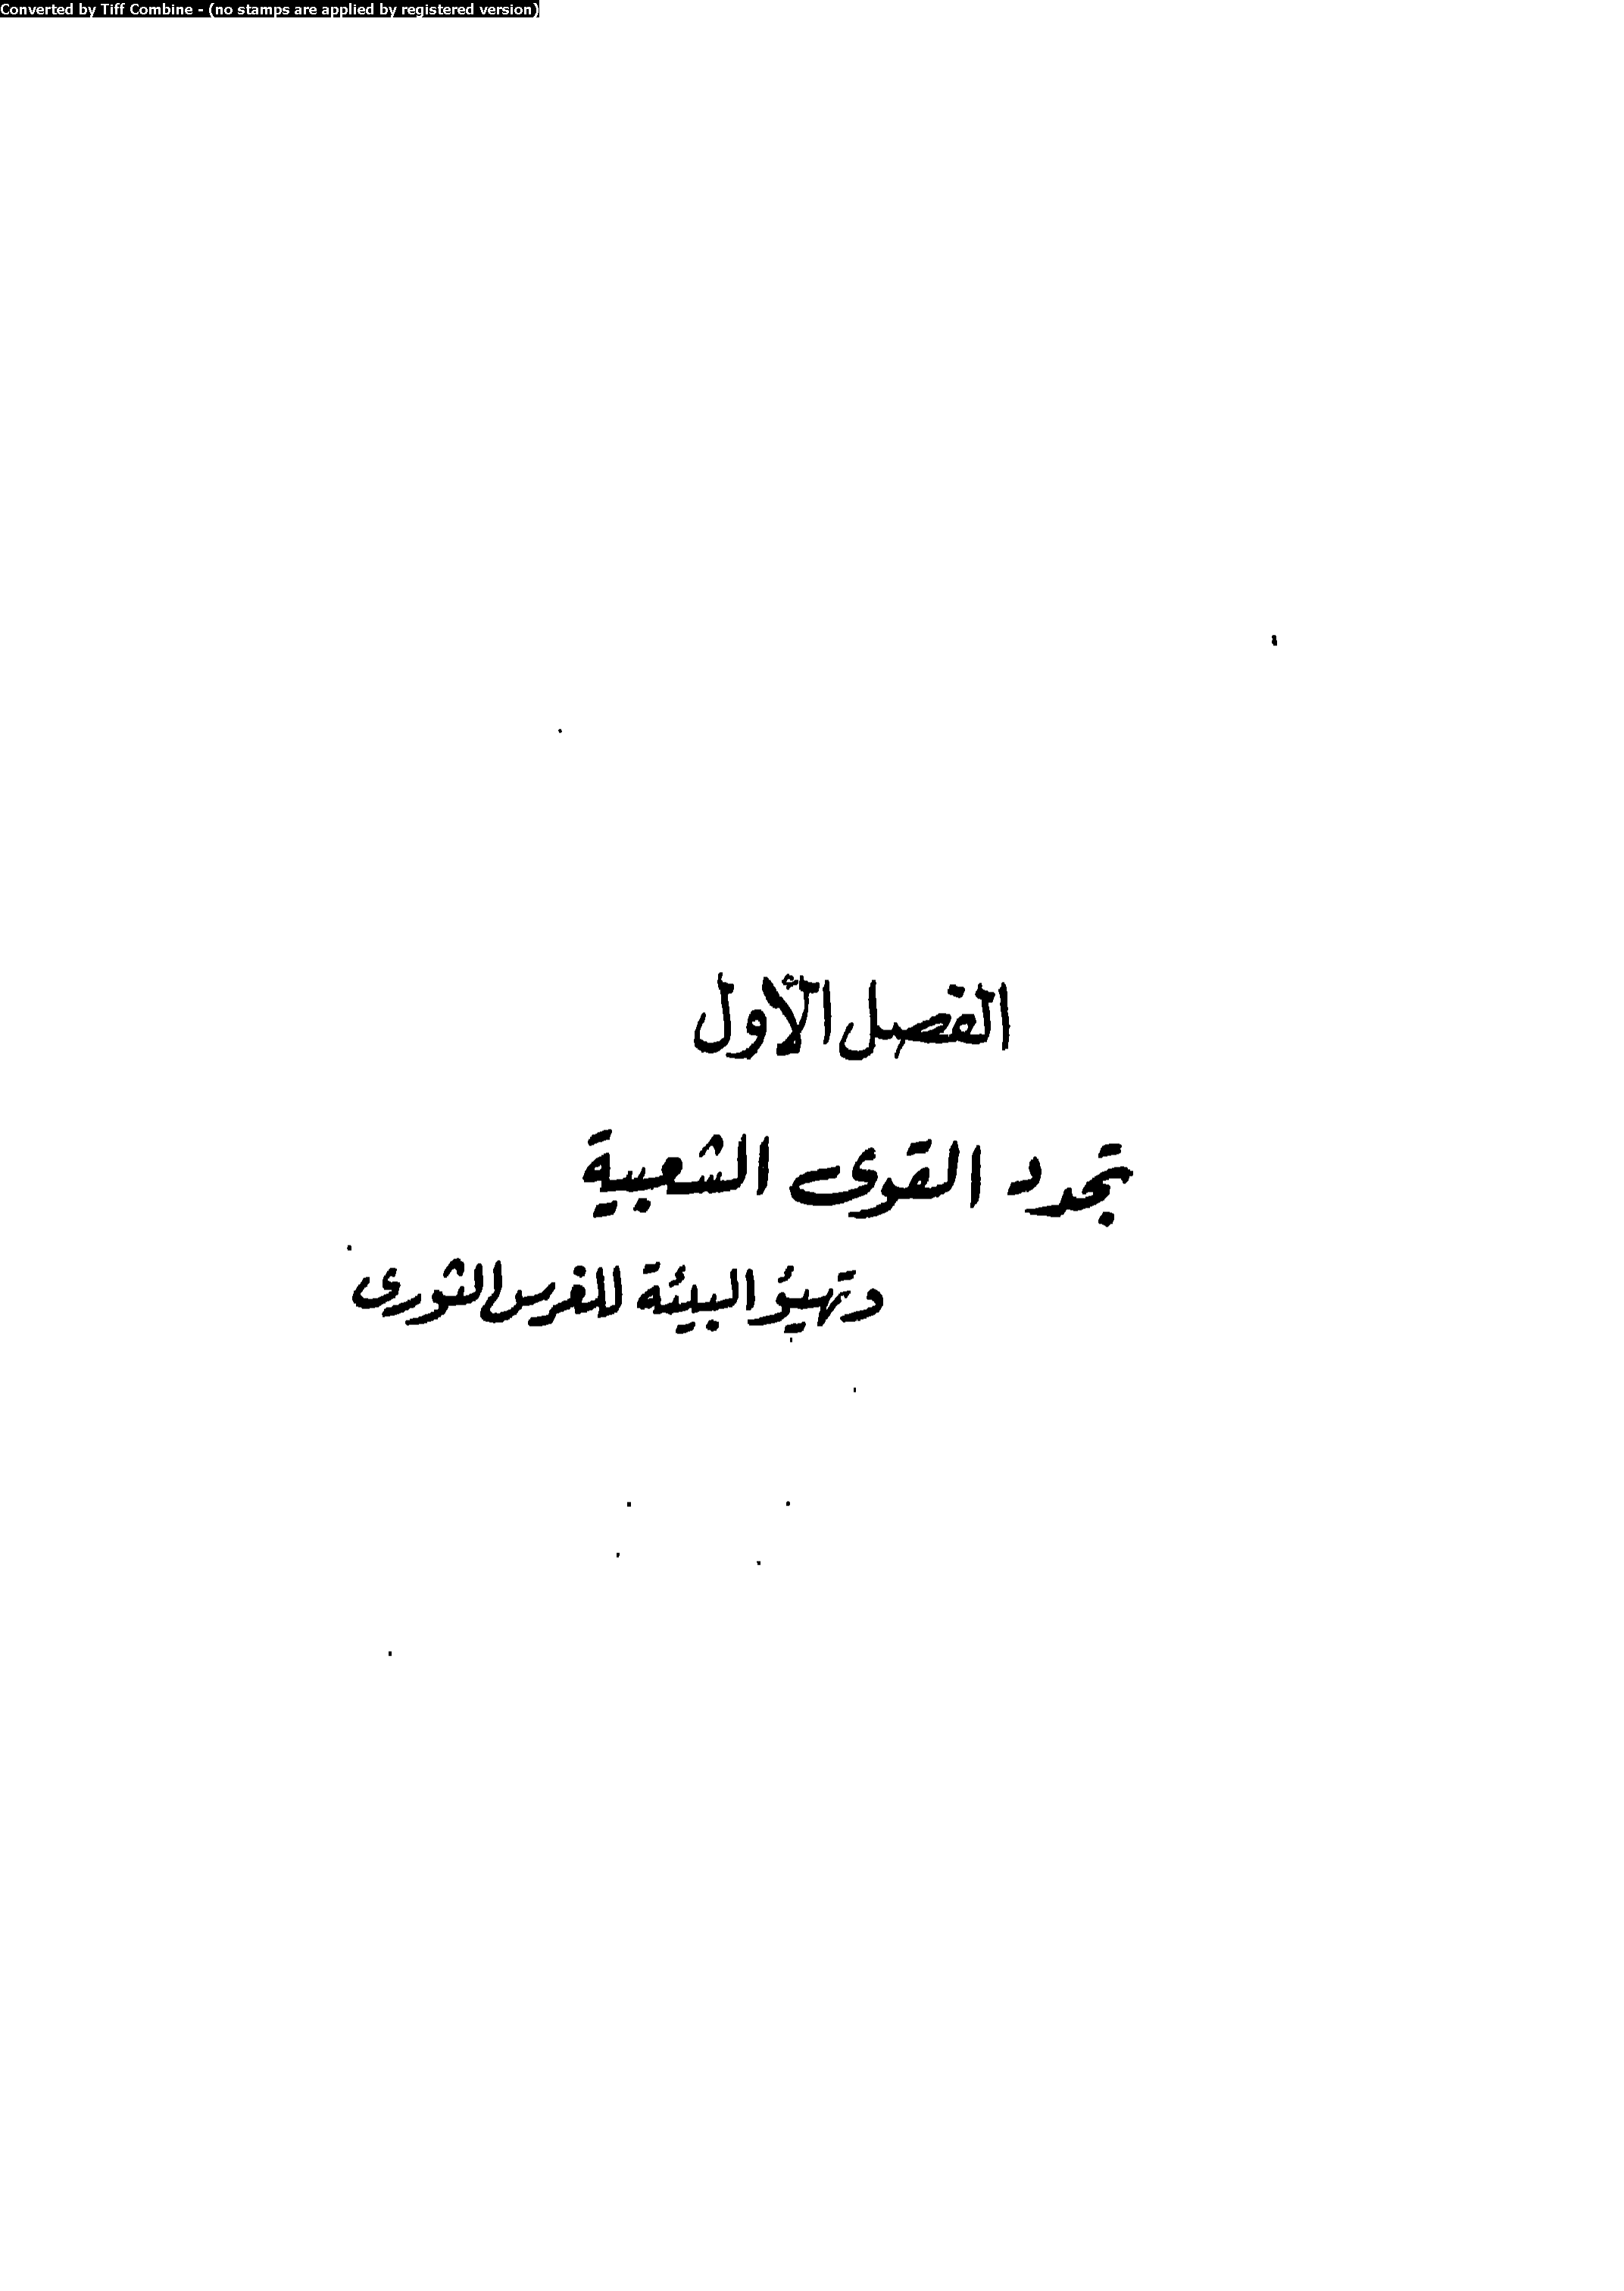 Converted by Tiff Combine - (no stamps are applied by registered version)
الفصل الأول
تجدد القوى الشعبية
وتهيؤ البيئة للغرس الثورى